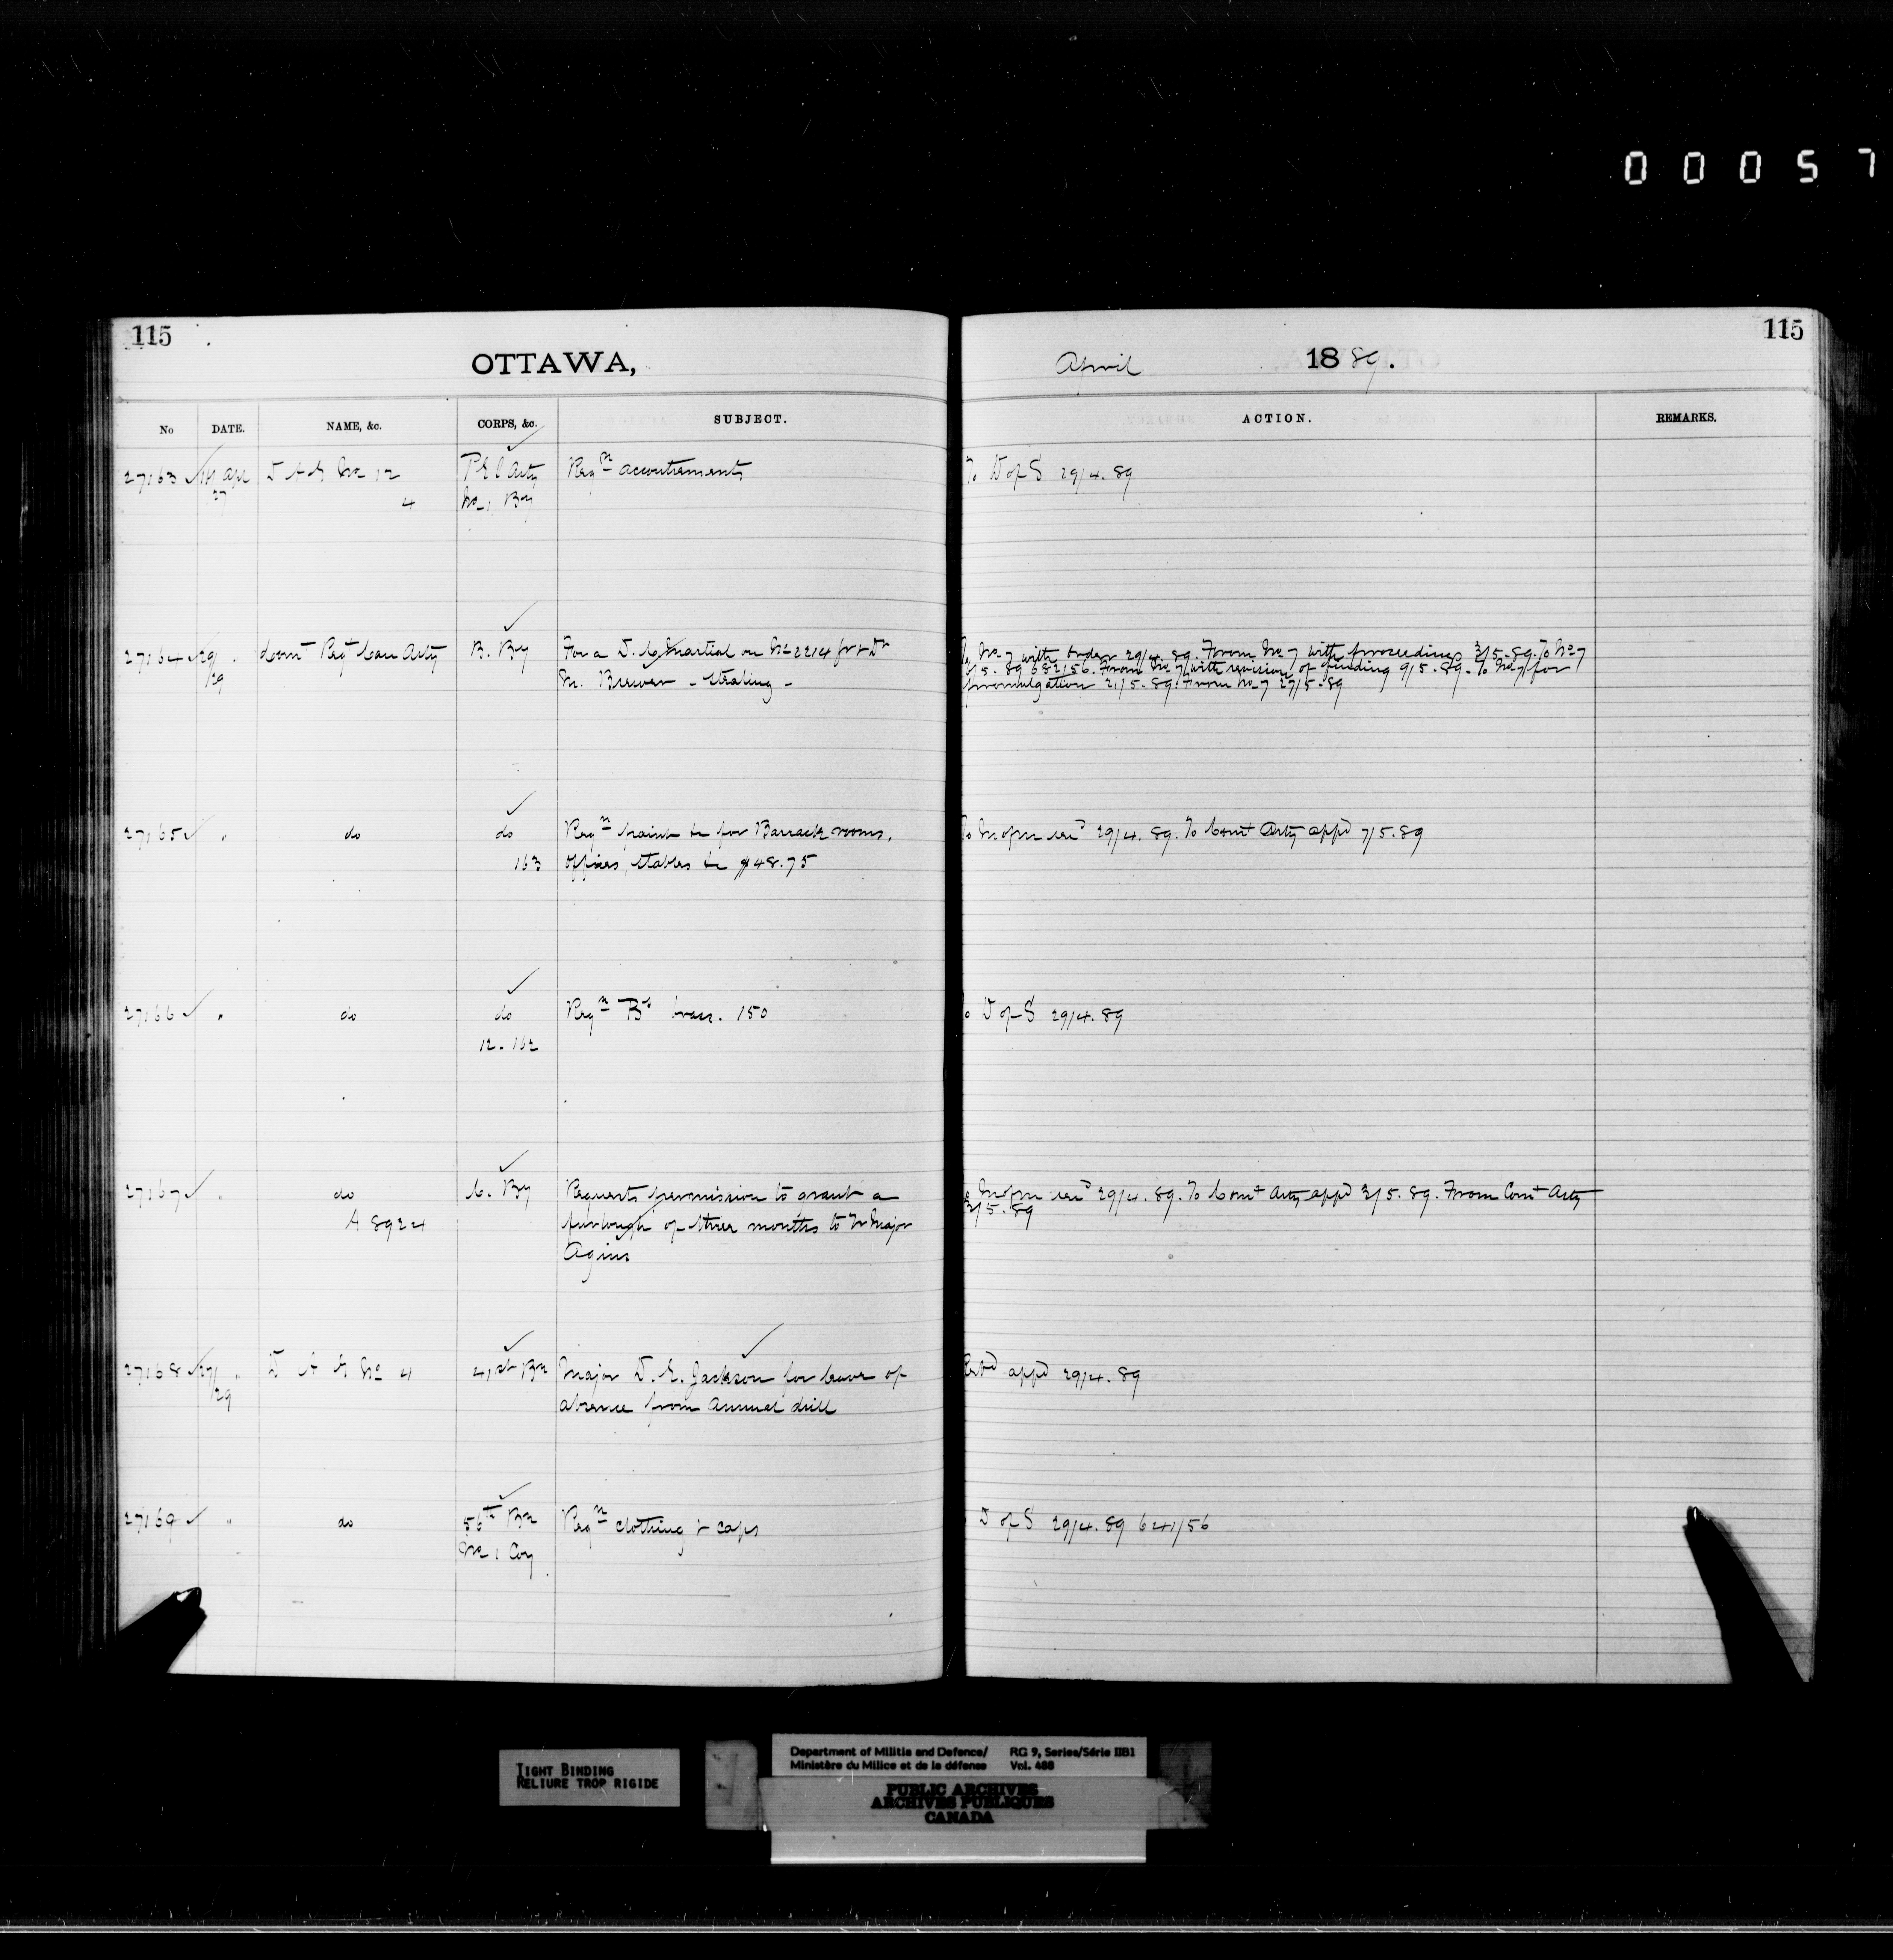 00057
115
OTTAWA,
No DATE. NAME, &c. CORPS, &c. SUBJECT.
27163 apl D A G No 12 P E I Arty Reqn accoutrements
27 4 No 1 By
27164 29 Comt Regt Can Arty B. By For a D. C. Martial on No 2214
29 Brewer - stealing -
27165 " do do Reqn paint &c for Barrack rooms,
163 offices, stables &c $48.75
27166 " do do Reqn 150
12. 162
27167 " do C. By Requests permission to grant a
A 8924 furlough of three months to Major
Agius
27168 27 " D A G No 4 41st Bn Major D. E. Jackson for leave of
29 absence from annual drill
27169 " do 56th Bn Reqn clothing & caps
No 1 Coy
115
April 1889.
ACTION. REMARKS.
To D of S 29/4.89
No 7 with order 29/4.89. From No 7 with proceedings 3/5.89. To No 7
/5.89 652/56. From No 7 with revision of finding 9/5.89. To No 7 for
promulgation 21/5.89. From No 7 27/5.89
To 29/4.89. To Comt Arty appd 7/5.89
D of S 29/4.89
29/4.89. To Comt Arty appd 2/5.89. From Comt Arty
3/5.89
appd 29/4.89
D of S 29/4.89 641/56
TIGHT BINDING
RELIURE TROP RIGIDE
Department of Militia and Defence/ RG 9, Series/Série IIB1
Ministère du Milice et de la défense Vol. 488
PUBLIC ARCHIVES
ARCHIVES PUBLIQUES
CANADA